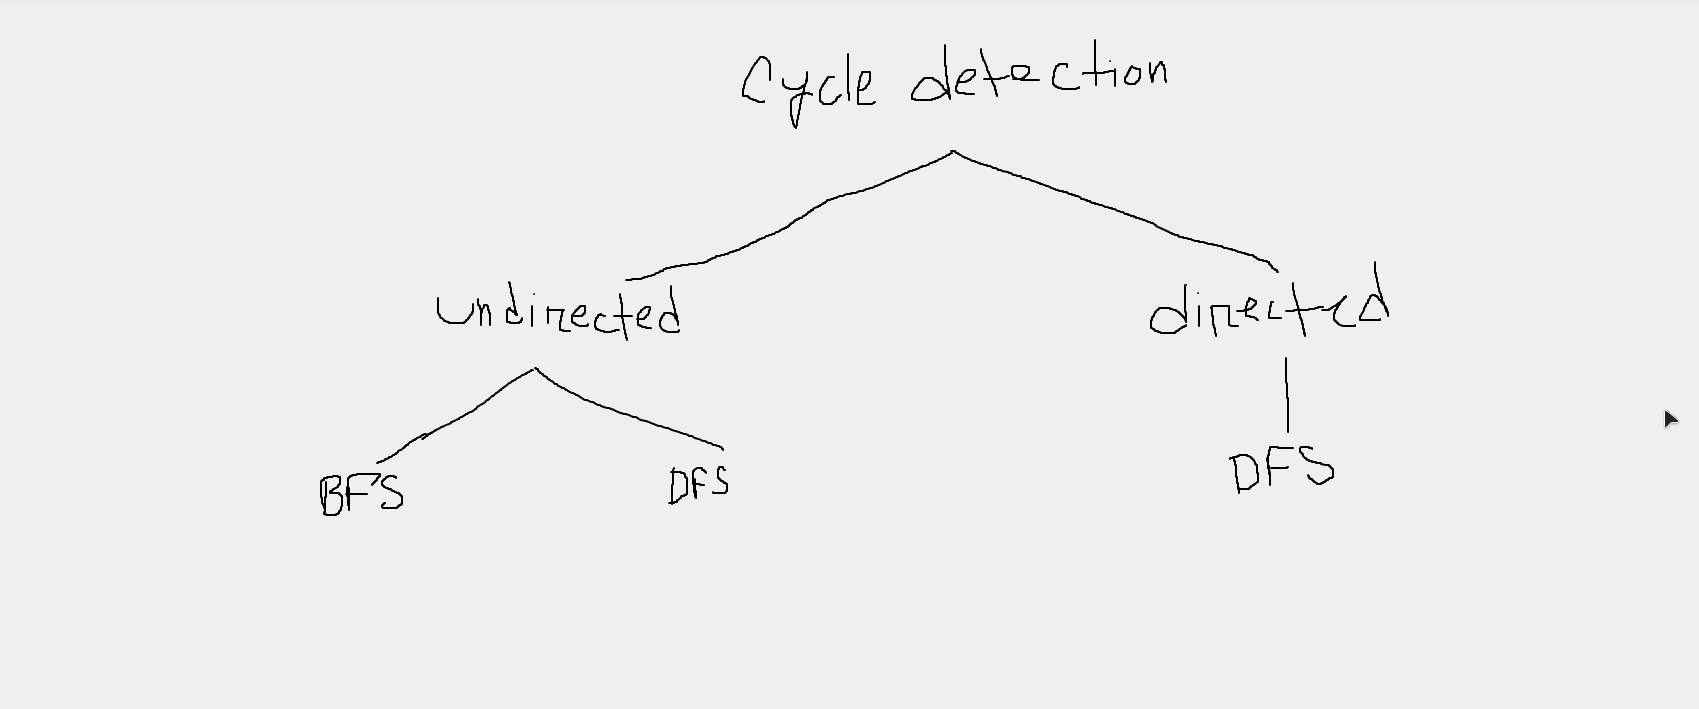 Cycle detection
undirected
directed
BFS
DFS
DFS